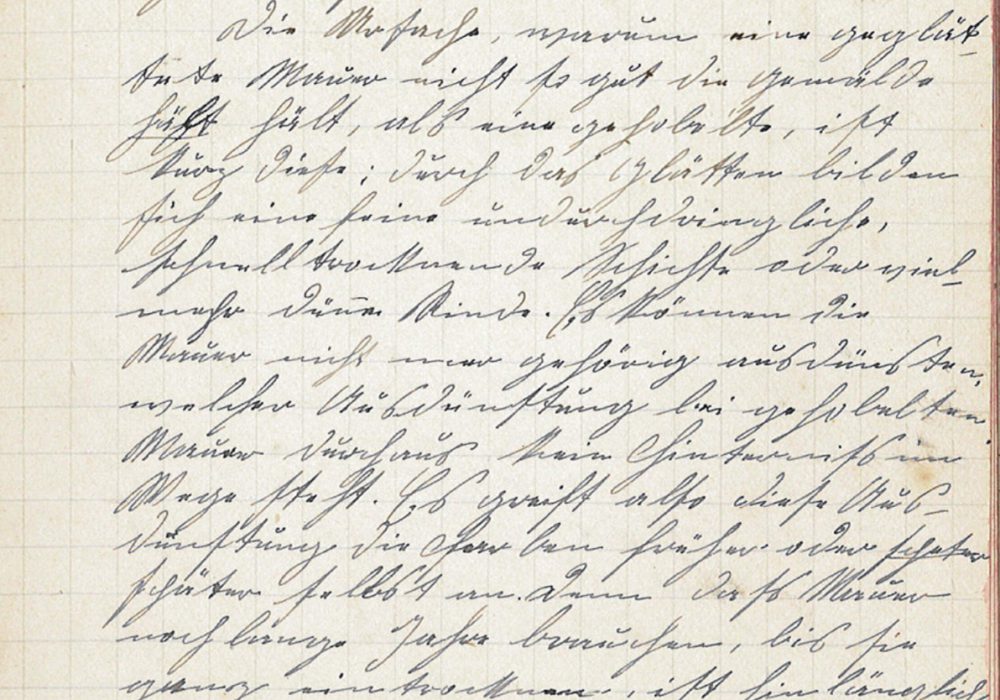 Die Ursache, warum eine geglät-
tete Mauer nicht so gut die Gemälde
hält, als eine gehobelte, ist
kurz diese; durch das Glätten bilden
sich eine feine undurchdringliche,
schnelltrocknende Schichte oder viel-
mehr dünne Rinde. Es können die
Mauer nicht mer gehörig ausdünsten,
welcher Ausdünstung bei gehobelten
Mauer durchaus kein Hinterniß im
Wege steht. Es greift also diese Aus-
dünstung die Farben früher oder schpäter
später selbst an. Denn daß Mauer
noch lange Jahre brauchen, bis sie
ganz eintrocknen, ist hinlänglich